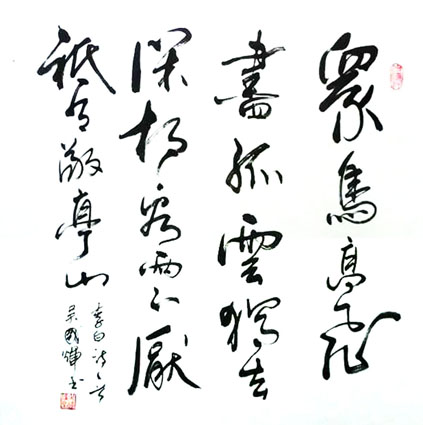 眾鳥高飛
盡孤雲獨去
閑相看兩不厭
祇有敬亭山
李白詩一首
吳國輝書